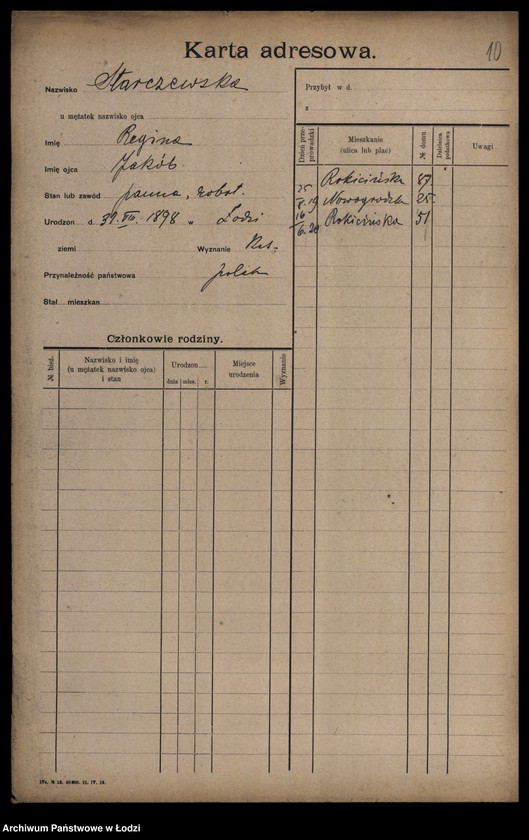 10
Karta adresowa.
Nazwisko Starczewska
u mężatek nazwisko ojca
Imię Regina
Imię ojca Jakób
Stan lub zawód panna, robot.
Urodzon d. 31. VIII. 1898 w Łodzi
ziemi Wyznanie Kat.
Przynależność państwowa polsk
Stał. mieszkan.
Członkowie rodziny.
№ bież.
Nazwisko i imię
(u mężatek nazwisko ojca)
i stan
Urodzon
dnia mies. r.
Miejsce
urodzenia
Wyznanie
Przybył w d.
z
Dzień prze-
prowadzki
Mieszkanie
(ulica lub plac)
№ domu
Dzielnica
podatkowa
Uwagi
Rokicińska 87
25/8.19 Nowogrodzka 25.
16/6.20 Rokicińska 51
Archiwum Państwowe w Łodzi